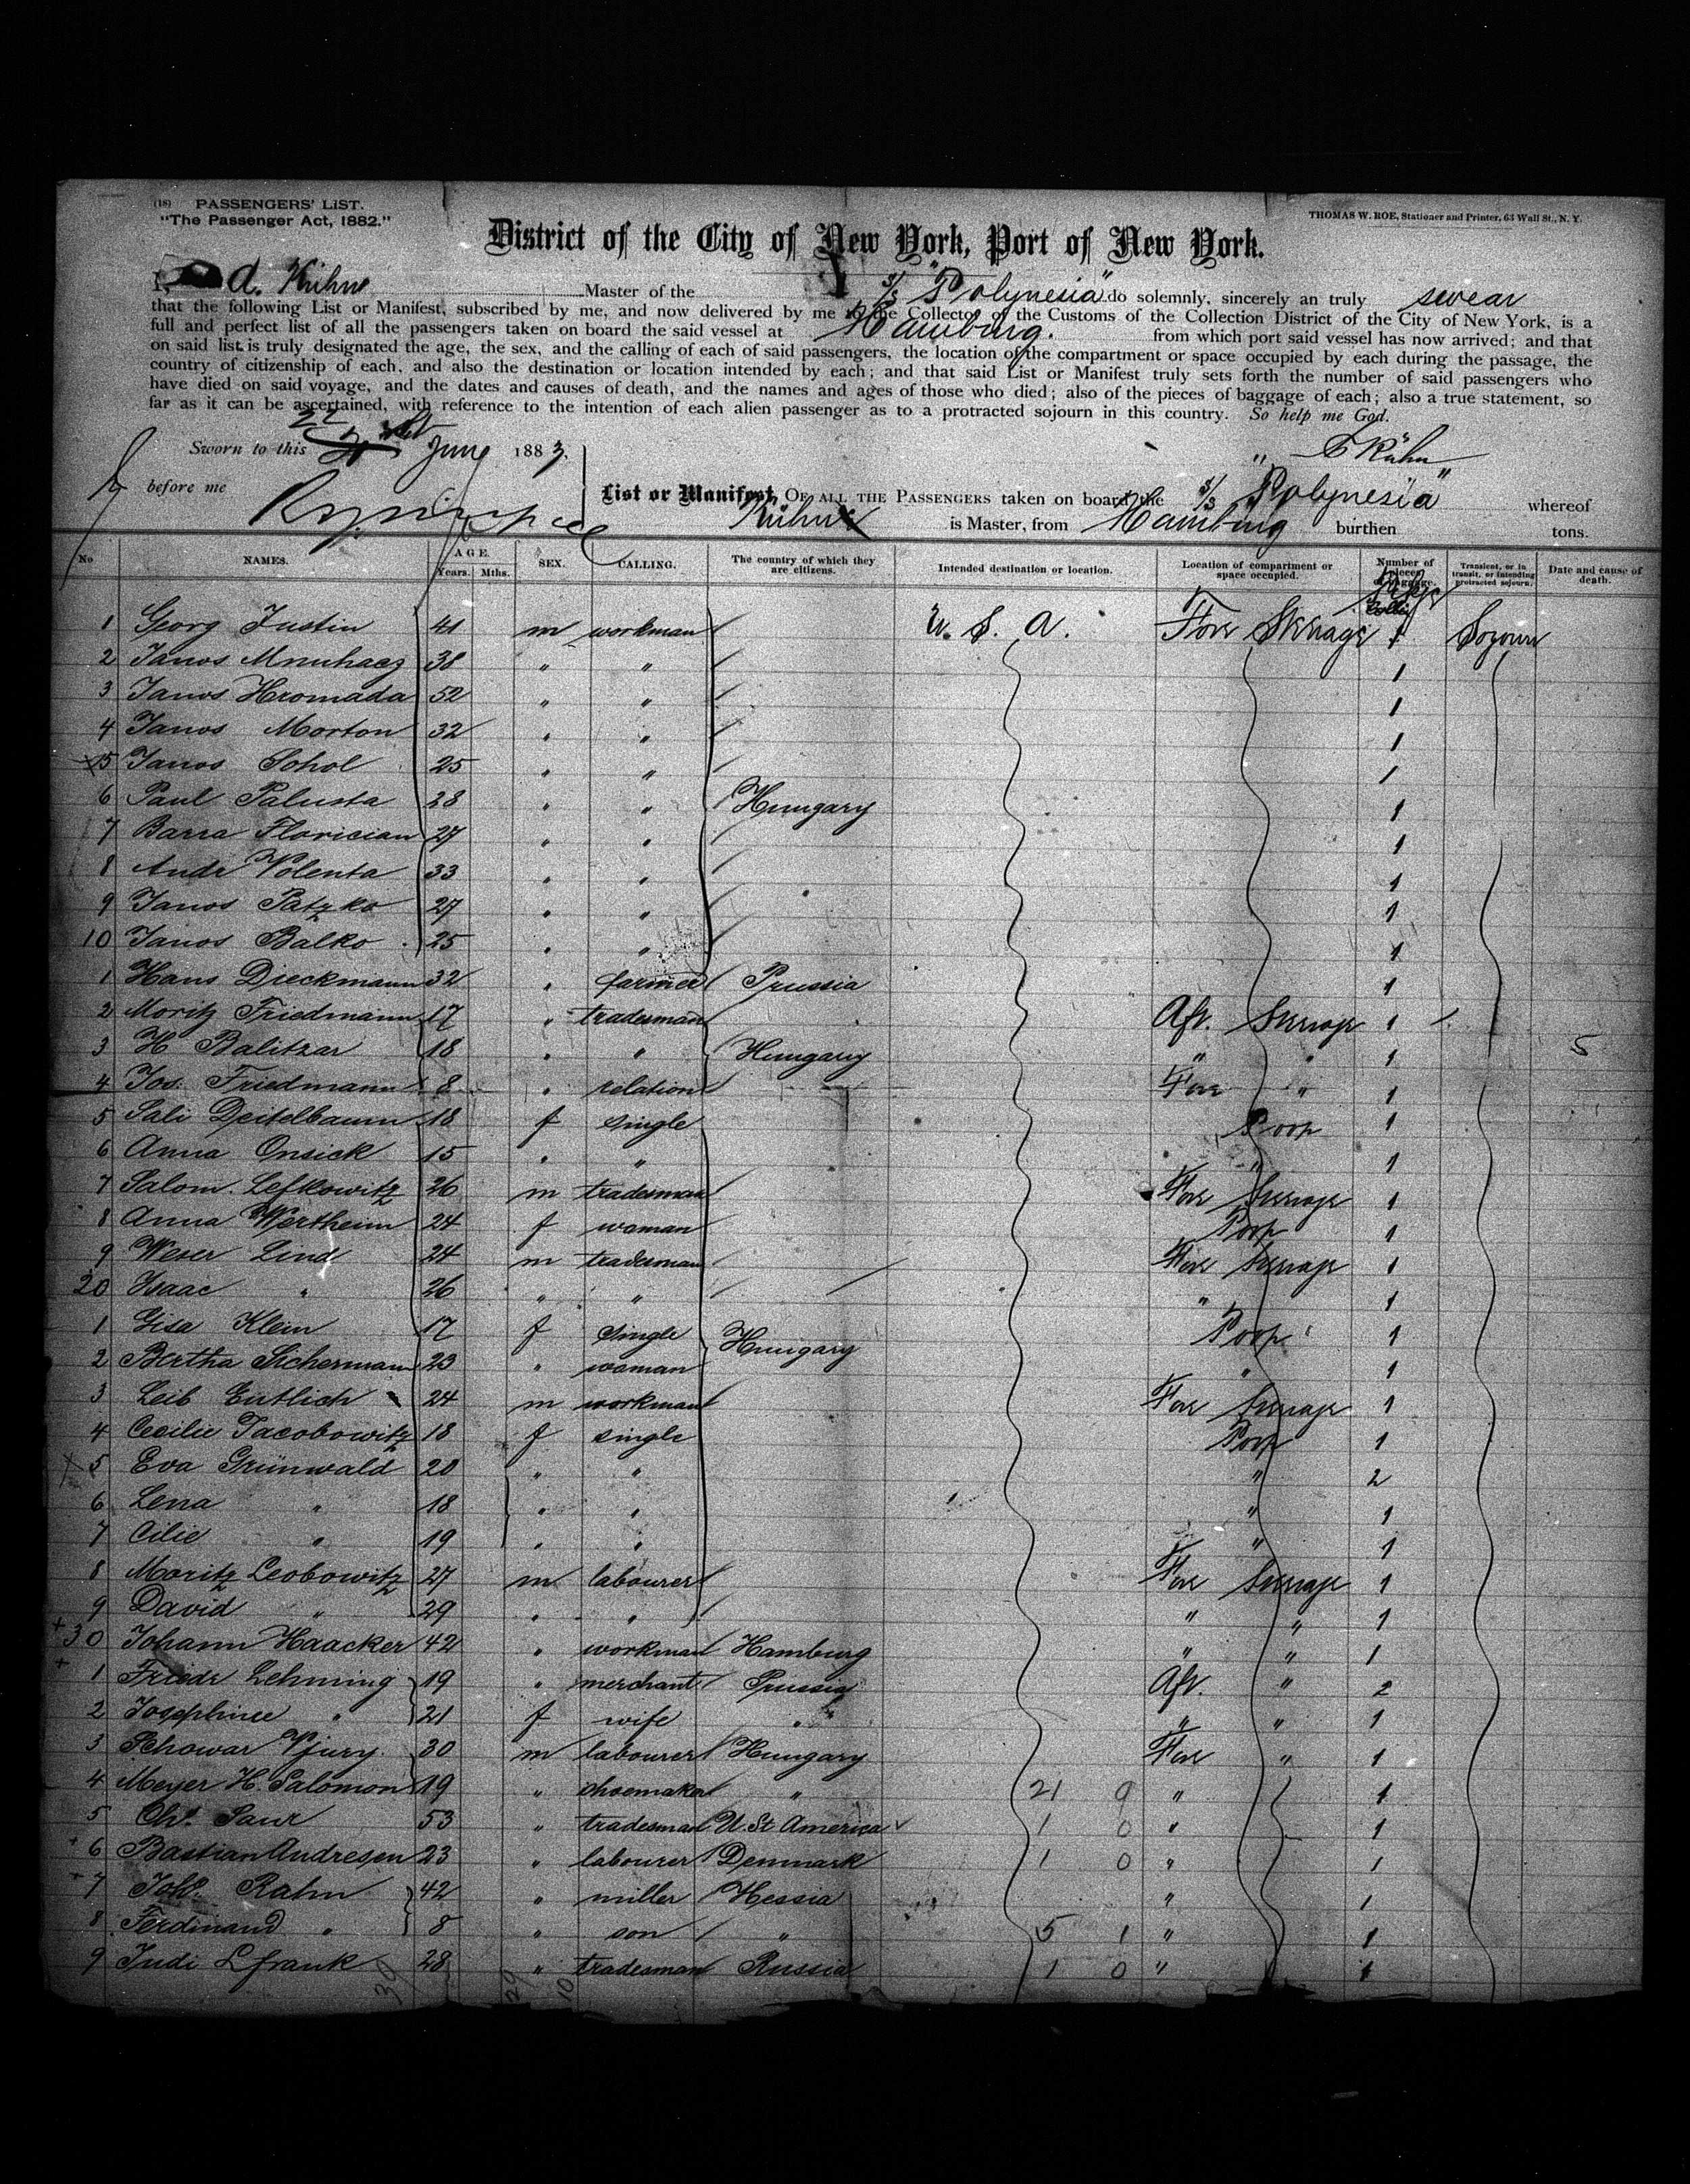 (18) PASSENGERS' LIST.
"The Passenger Act, 1882."
THOMAS W. ROE, Stationer and Printer, 63 Wall St., N. Y.
District of the City of New York, Port of New York.
I, A. Kühn Master of the S/S "Polynesia" do solemnly, sincerely an truly swear
that the following List or Manifest, subscribed by me, and now delivered by me to the Collector of the Customs of the Collection District of the City of New York, is a
full and perfect list of all the passengers taken on board the said vessel at Hamburg. from which port said vessel has now arrived; and that
on said list is truly designated the age, the sex, and the calling of each of said passengers, the location of the compartment or space occupied by each during the passage, the
country of citizenship of each, and also the destination or location intended by each; and that said List or Manifest truly sets forth the number of said passengers who
have died on said voyage, and the dates and causes of death, and the names and ages of those who died; also of the pieces of baggage of each; also a true statement, so
far as it can be ascertained, with reference to the intention of each alien passenger as to a protracted sojourn in this country. So help me God.
Sworn to this 22 June 1883,
Kühn
before me
List or Manifest, OF ALL THE PASSENGERS taken on board the S/S "Polynesia" whereof
Kühn is Master, from Hamburg burthen tons.
No NAMES. AGE. Years. Mths. SEX. CALLING. The country of which they are citizens. Intended destination or location. Location of compartment or space occupied. Number of pieces of baggage. Transient, or in transit, or intending protracted sojourn. Date and cause of death.
1 Georg Justin 41 m workman U. S. A. Fore Steerage 1 Sojourn
2 Janos Mnuhacz 38 " " 1
3 Janos Hromada 52 " " 1
4 Janos Morton 32 " " 1
5 Janos Sohol 25 " " 1
6 Paul Palusta 28 " " Hungary 1
7 Barra Florician 27 " " 1
8 Andr Volenta 33 " " 1
9 Janos Patzko 27 " " 1
10 Janos Balko 25 " " 1
1 Hans Dieckmann 32 " farmer Prussia 1
2 Moritz Friedmann 17 " tradesman Aft. Steerage 1
3 H Balitzar 18 " " Hungary " " 1 5
4 Jos. Friedmann 8 " relation Fore " 1
5 Sali Deitelbaum 18 f single Poop 1
6 Anna Onsick 15 " " " 1
7 Salom. Lefkowitz 26 m tradesman Fore Steerage 1
8 Anna Wertheim 24 f woman Poop 1
9 Weser Lind 24 m tradesman Fore Steerage 1
20 Isaac " 26 " " " 1
1 Gisa Klein 17 f single Hungary Poop 1
2 Bertha Sichermann 23 " woman " 1
3 Leib Eutlich 24 m workman Fore Steerage 1
4 Cecilie Jacobowitz 18 f single Poop 1
5 Eva Grünwald 20 " " " 2
6 Lena " 18 " " " 1
7 Cilie " 19 " " " 1
8 Moritz Leobowitz 27 m labourer Fore Steerage 1
9 David " 29 " " " " 1
30 Johann Haacker 42 " workman Hamburg " " 1
1 Friedr Lehming 19 " merchant Prussia Aft. " 2
2 Josephine " 21 f wife " " " 1
3 Schowar Vjury 30 m labourer Hungary Fore " 1
4 Meyer H. Salomon 19 " shoemaker " 21 9 " 1
5 Chr. Saur 53 " tradesman U. St America 1 0 " 1
6 Bastian Andresen 23 " labourer Denmark 1 0 " 1
7 Joh. Rahn 42 " miller Hessia " 1
8 Ferdinand " 8 " son " 5 1 " 1
9 Judi Lfrank 28 " tradesman Russia 1 0 " 1
39 29 10